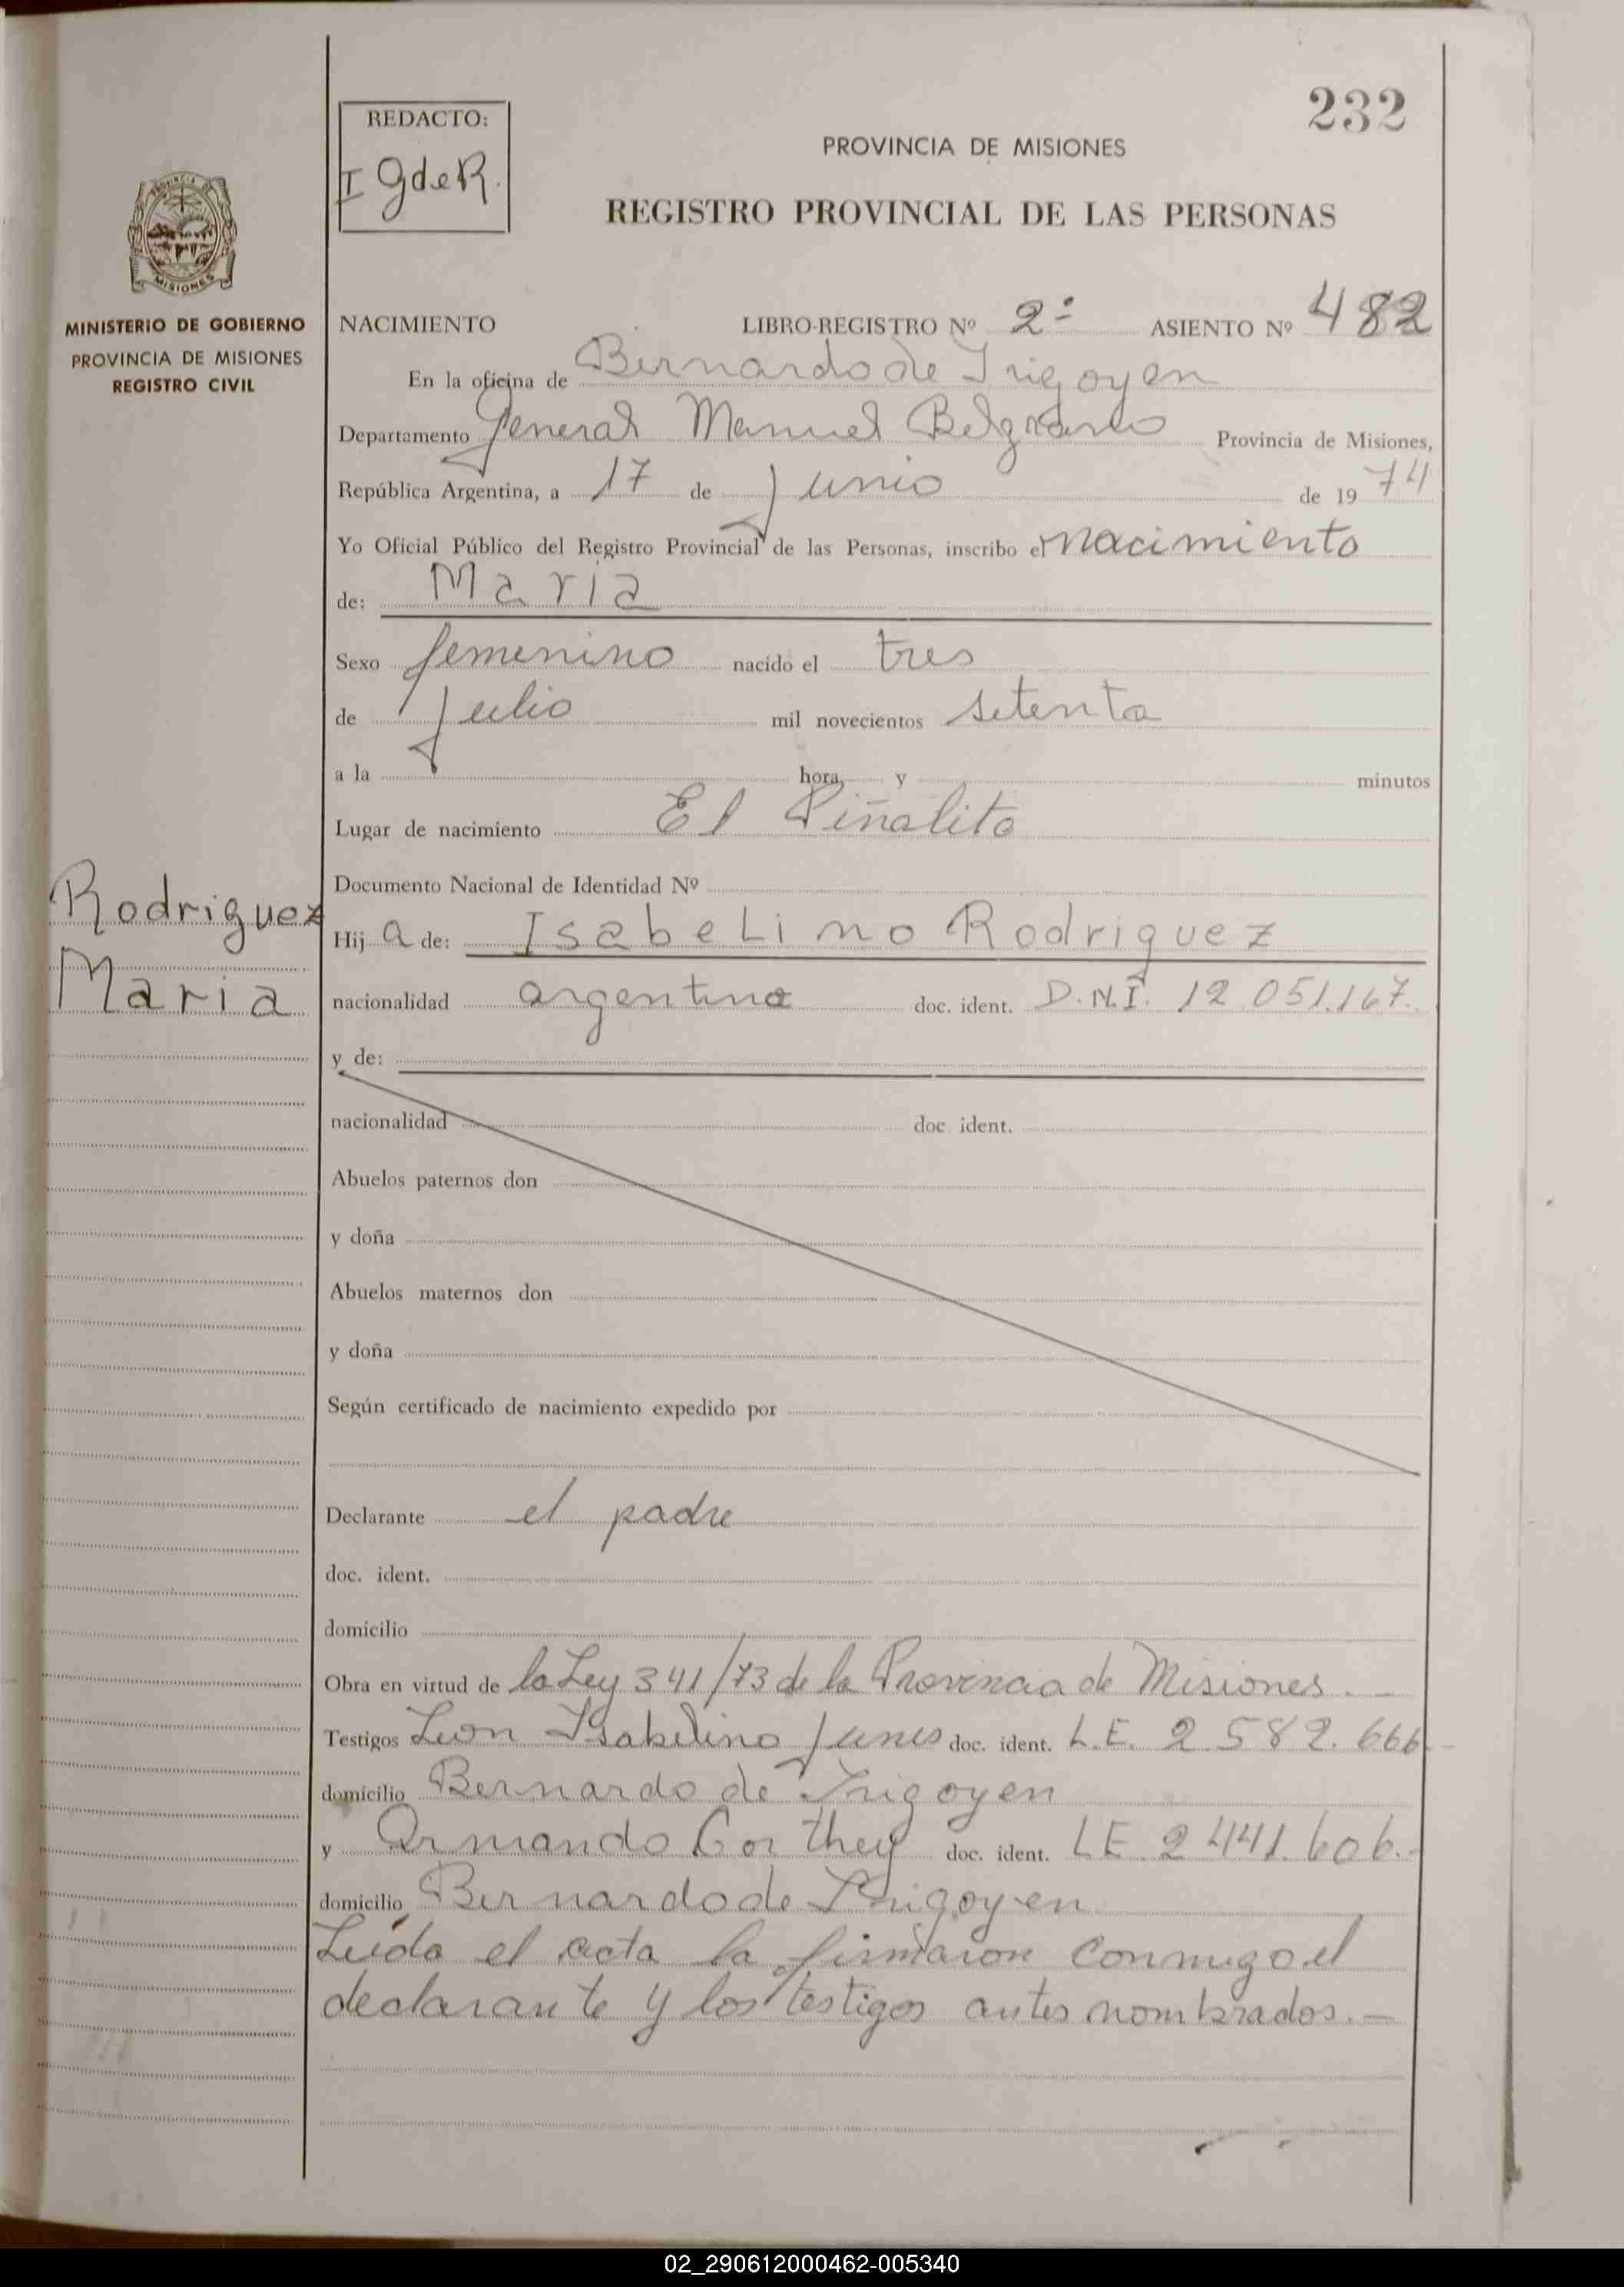 232
REDACTO:
I GdeR.
PROVINCIA DE MISIONES
REGISTRO PROVINCIAL DE LAS PERSONAS
PROVINCIA DE
MISIONES
MINISTERIO DE GOBIERNO
PROVINCIA DE MISIONES
REGISTRO CIVIL
NACIMIENTO LIBRO-REGISTRO Nº 2º ASIENTO Nº 482
En la oficina de Bernardo de Irigoyen
Departamento General Manuel Belgrano Provincia de Misiones,
República Argentina, a 17 de Junio de 1974
Yo Oficial Público del Registro Provincial de las Personas, inscribo el nacimiento
de: Maria
Sexo femenino nacido el tres
de Julio mil novecientos setenta
a la hora, y minutos
Lugar de nacimiento El Piñalito
Documento Nacional de Identidad Nº
Rodriguez
Maria
Hija de: Isabelino Rodriguez
nacionalidad argentina doc. ident. D.N.I. 12 051.167.
y de:
nacionalidad doc. ident.
Abuelos paternos don
y doña
Abuelos maternos don
y doña
Según certificado de nacimiento expedido por
Declarante el padre
doc. ident.
domicilio
Obra en virtud de la Ley 341/73 de la Provincia de Misiones.—
Testigos Leon Isabelino Junes doc. ident. L.E. 2 582.666.-
domicilio Bernardo de Irigoyen
y Armando Corthey doc. ident. LE 2 441.606.-
domicilio Bernardo de Irigoyen
Leída el acta la firmaron conmigo el
declarante y los testigos antes nombrados.—
02_290612000462-005340